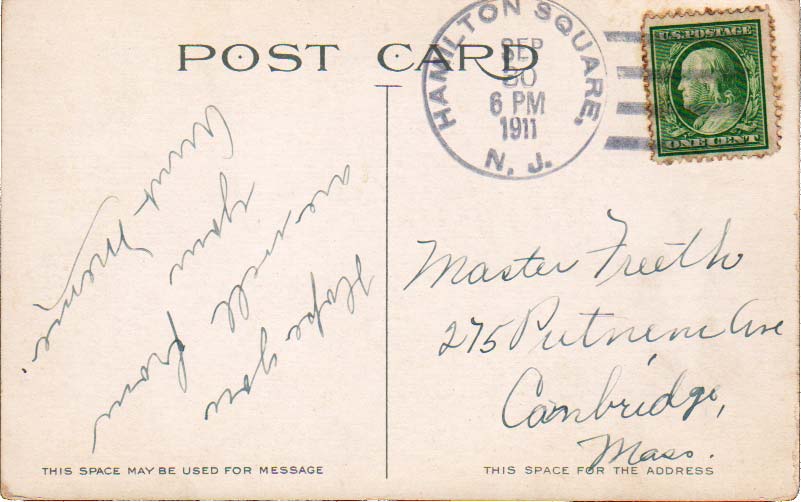 POST CARD
HAMILTON SQUARE,
SEP
30
6 PM
1911
N. J.
U.S. POSTAGE
ONE CENT
Hope you
are well from
your
Aunt
Master Freeth
275 Putnem Ave
Canbridge,
Mass.
THIS SPACE MAY BE USED FOR MESSAGE
THIS SPACE FOR THE ADDRESS